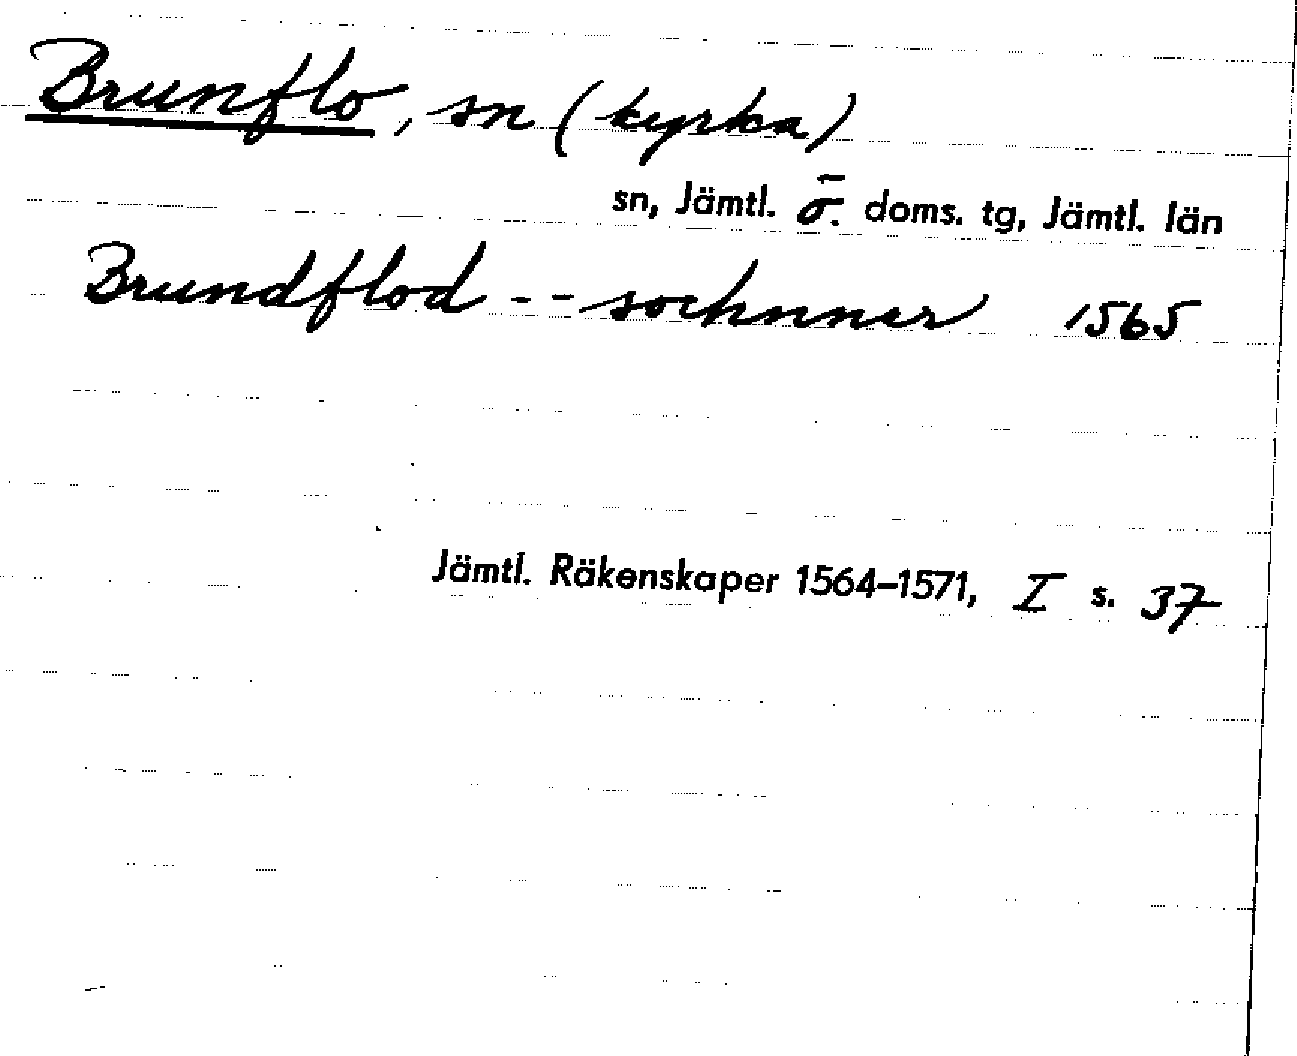 Brunflo, sn (kyrka)
sn, Jämtl. ö. doms. tg, Jämtl. län
Brundflod -- sochnner 1565
Jämtl. Räkenskaper 1564–1571, I s. 37